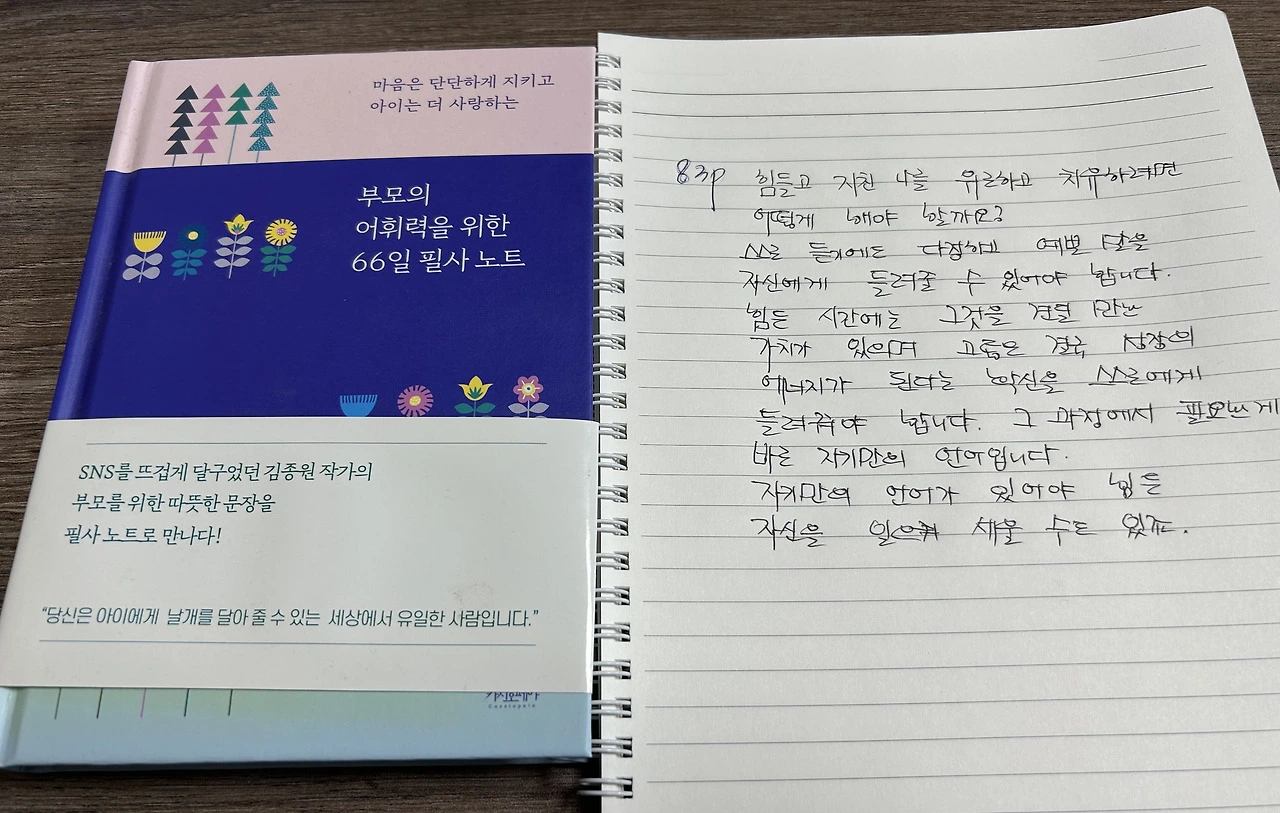 마음은 단단하게 지키고
아이는 더 사랑하는
부모의
어휘력을 위한
66일 필사 노트
SNS를 뜨겁게 달구었던 김종원 작가의
부모를 위한 따뜻한 문장을
필사 노트로 만나다!
“당신은 아이에게 날개를 달아 줄 수 있는 세상에서 유일한 사람입니다.”
카시오페아
Cassiopeia
83p 힘들고 지친 나를 위로하고 치유하려면
어떻게 해야 할까요?
스스로 듣기에도 다정하고 예쁜 말을
자신에게 들려줄 수 있어야 합니다.
힘든 시간에는 그것을 견딜 만한
가치가 있으며 고통은 결국 성장의
에너지가 된다는 확신을 스스로에게
들려줘야 합니다. 그 과정에서 필요한 게
바로 자기만의 언어입니다.
자기만의 언어가 있어야 힘든
자신을 일으켜 세울 수도 있죠.